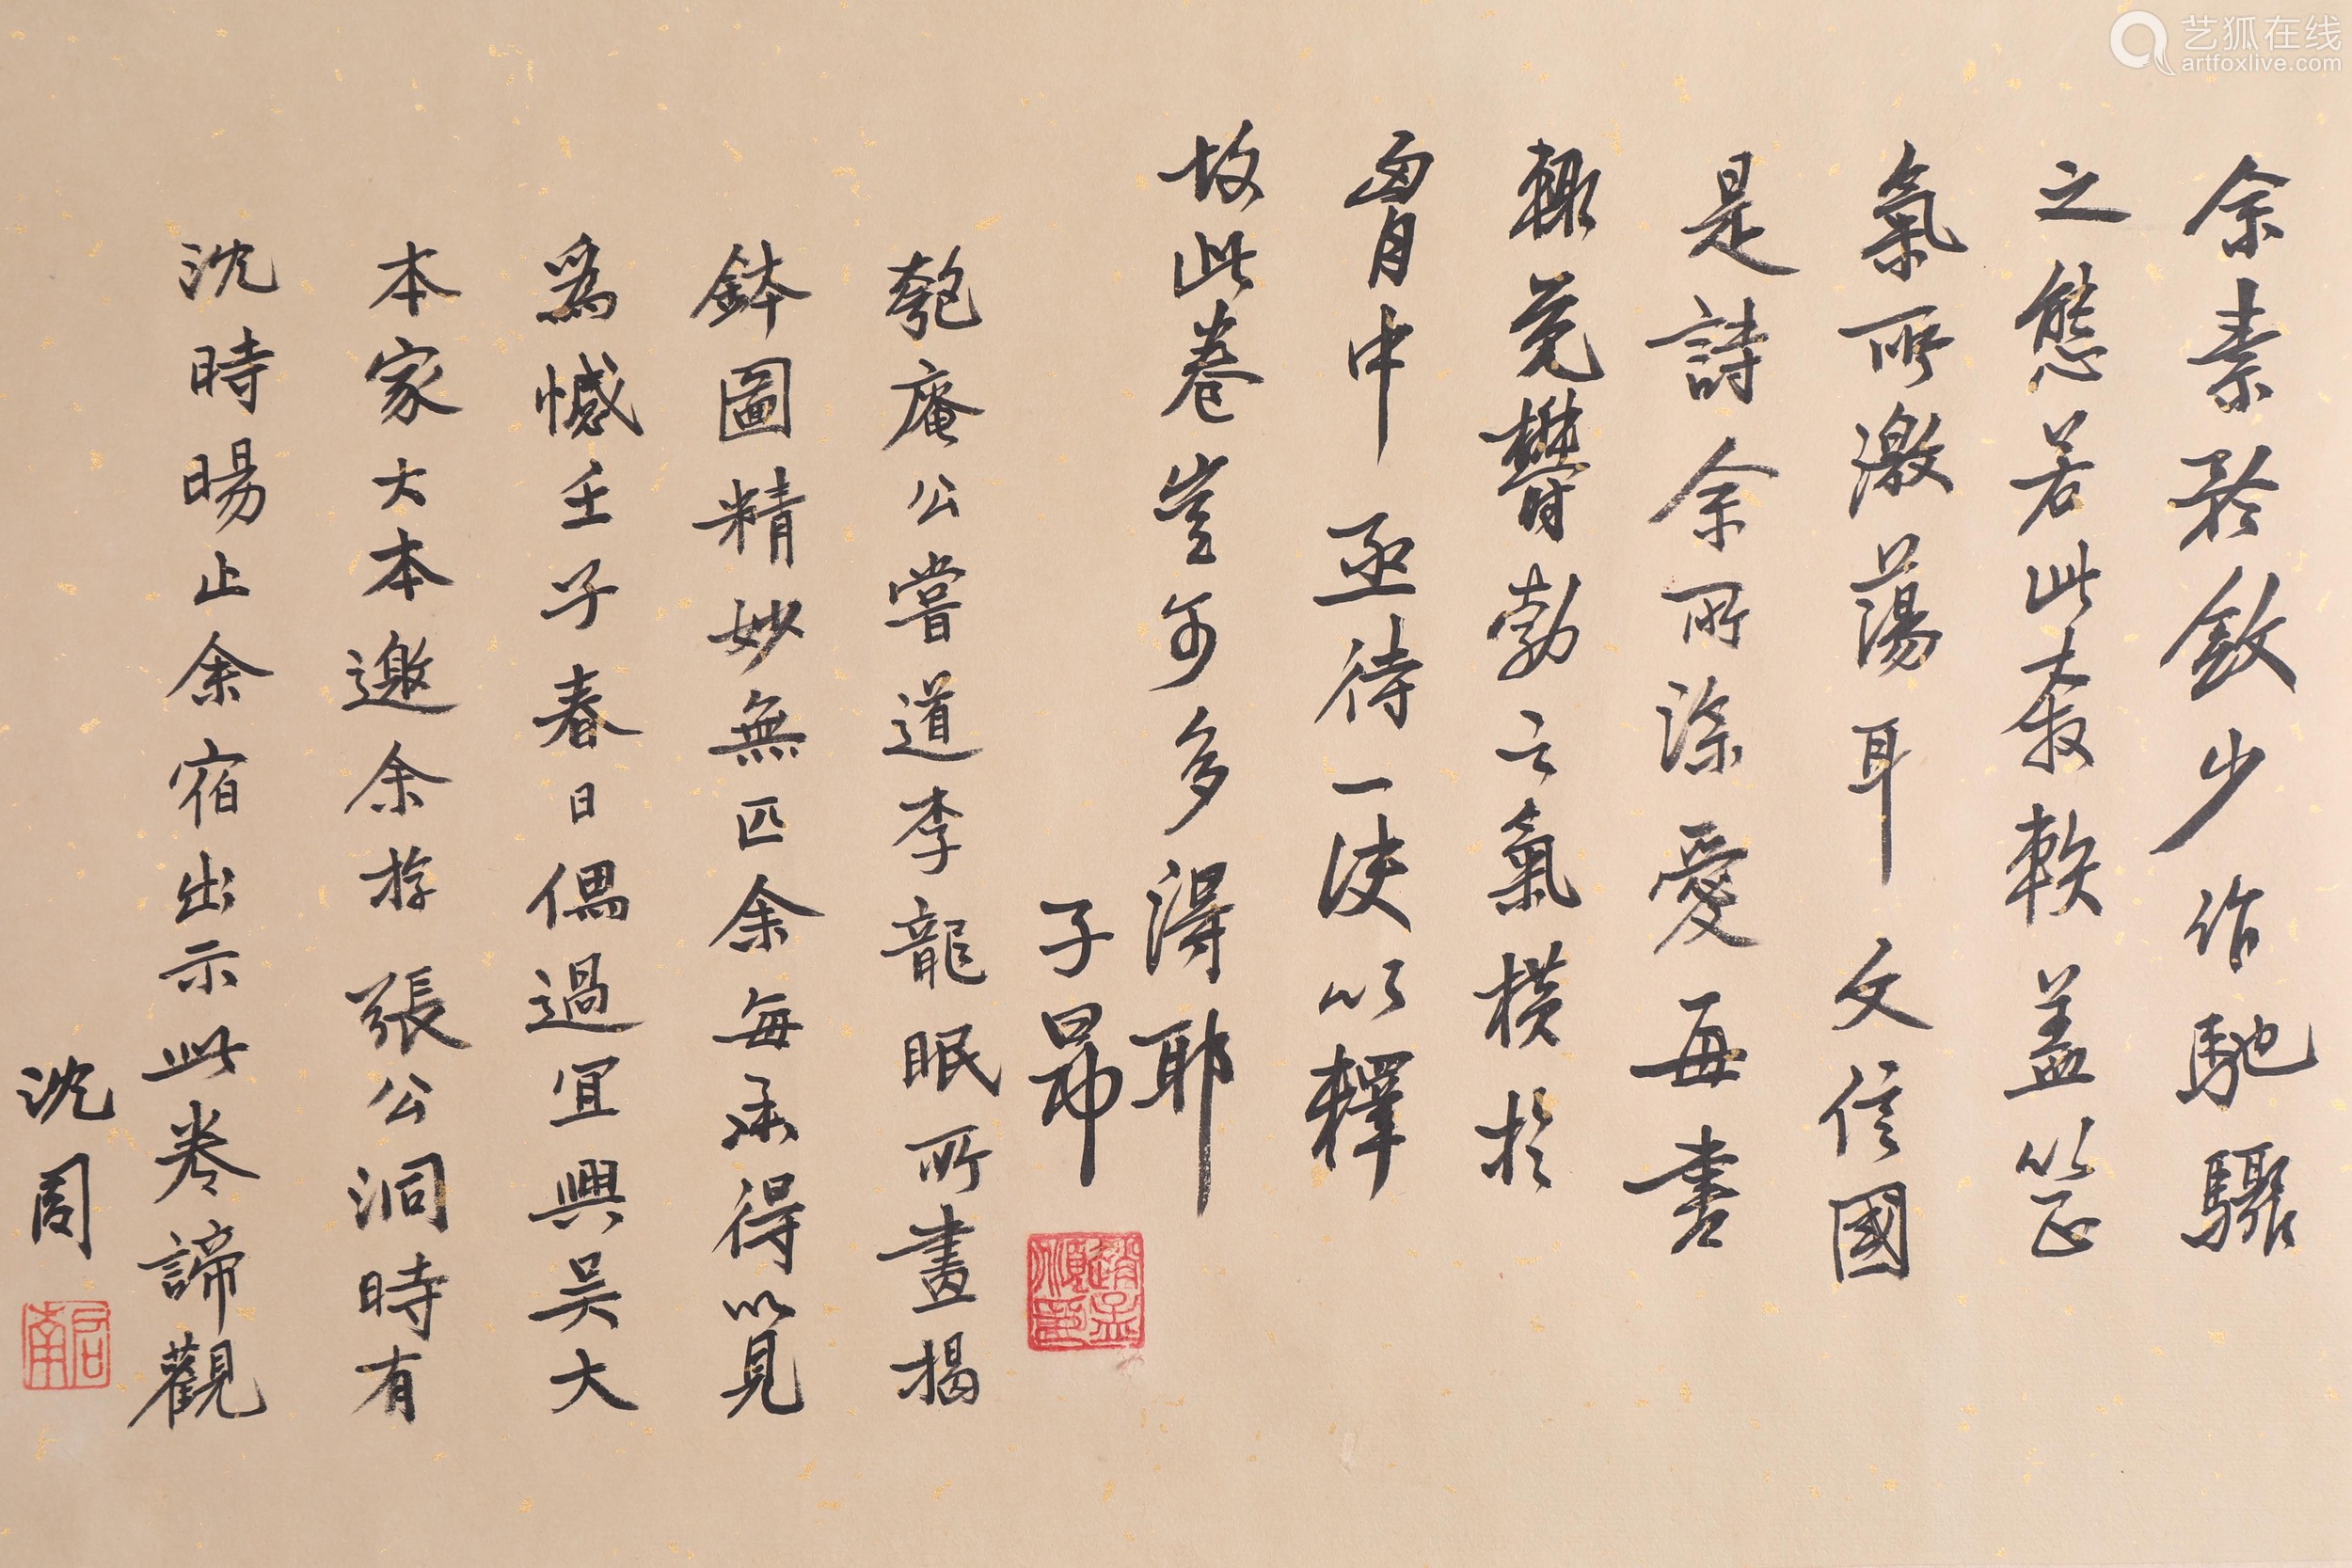 余素矜斂少作馳驟
之態若此裝軼蓋以正
氣所激蕩耳文信國
是詩余所深愛每書
輒覺鬱勃之氣橫於
胷中亟待一決以釋
故此卷豈可多得耶
子昂
匏庵公嘗道李龍眠所畫揭
鉢圖精妙無匹余每承得以見
爲憾壬子春日偶過宜興吳大
本家大本邀余游張公洞時有
沈時暘止余宿出示此卷諦觀
沈周
艺狐在线
artfoxlive.com